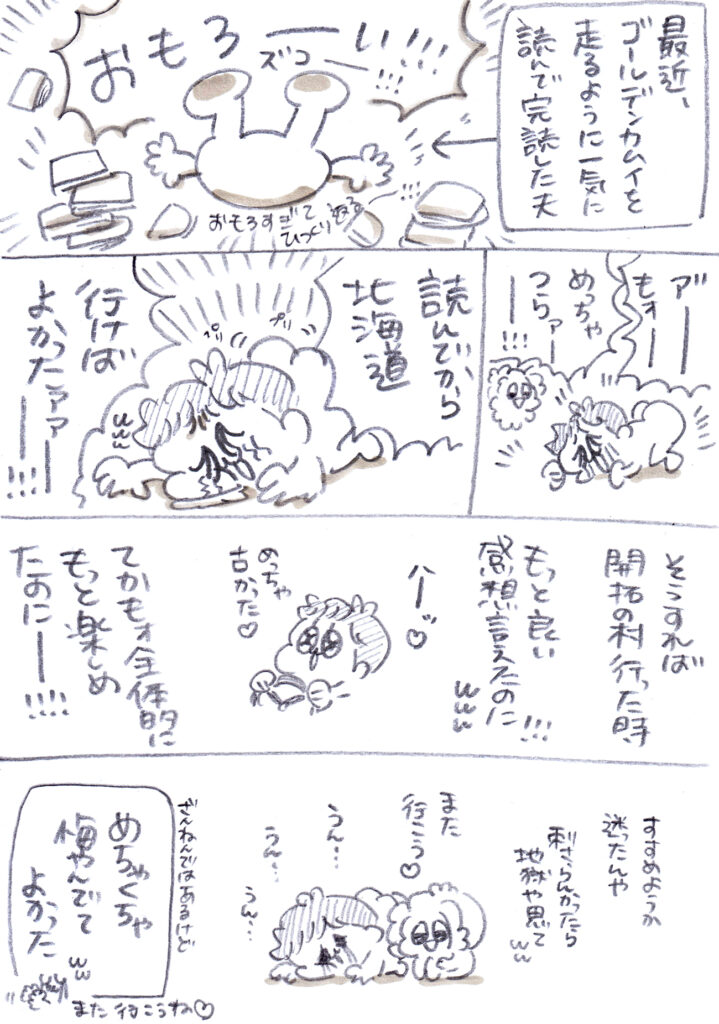 最近、
ゴールデンカムイを
走るように一気に
読んで完読した夫
おもろーい!!!
ズコー!!!
おもろすぎて
ひっくり返る
ア゛ーー
もォーー
めっちゃ
つらァーー!!!
読んでから
北海道
行けば
よかったァァァーー!!!
プリ
プリ
www
そうすれば
開拓の村行った時
もっと良い
感想言えたのに!!!
www
ハーッ♡
めっちゃ
古かった♡
てかもォ全体的に
もっと楽しめ
たのにーー!!!!
すすめようか
迷ったんや
刺さらんかったら
地獄や思て
ww
また
行こう♡
うん…
うん…
うん…
ざんねんではあるけど
めちゃくちゃ
悔やんでて
よかったww
また行こうね♡